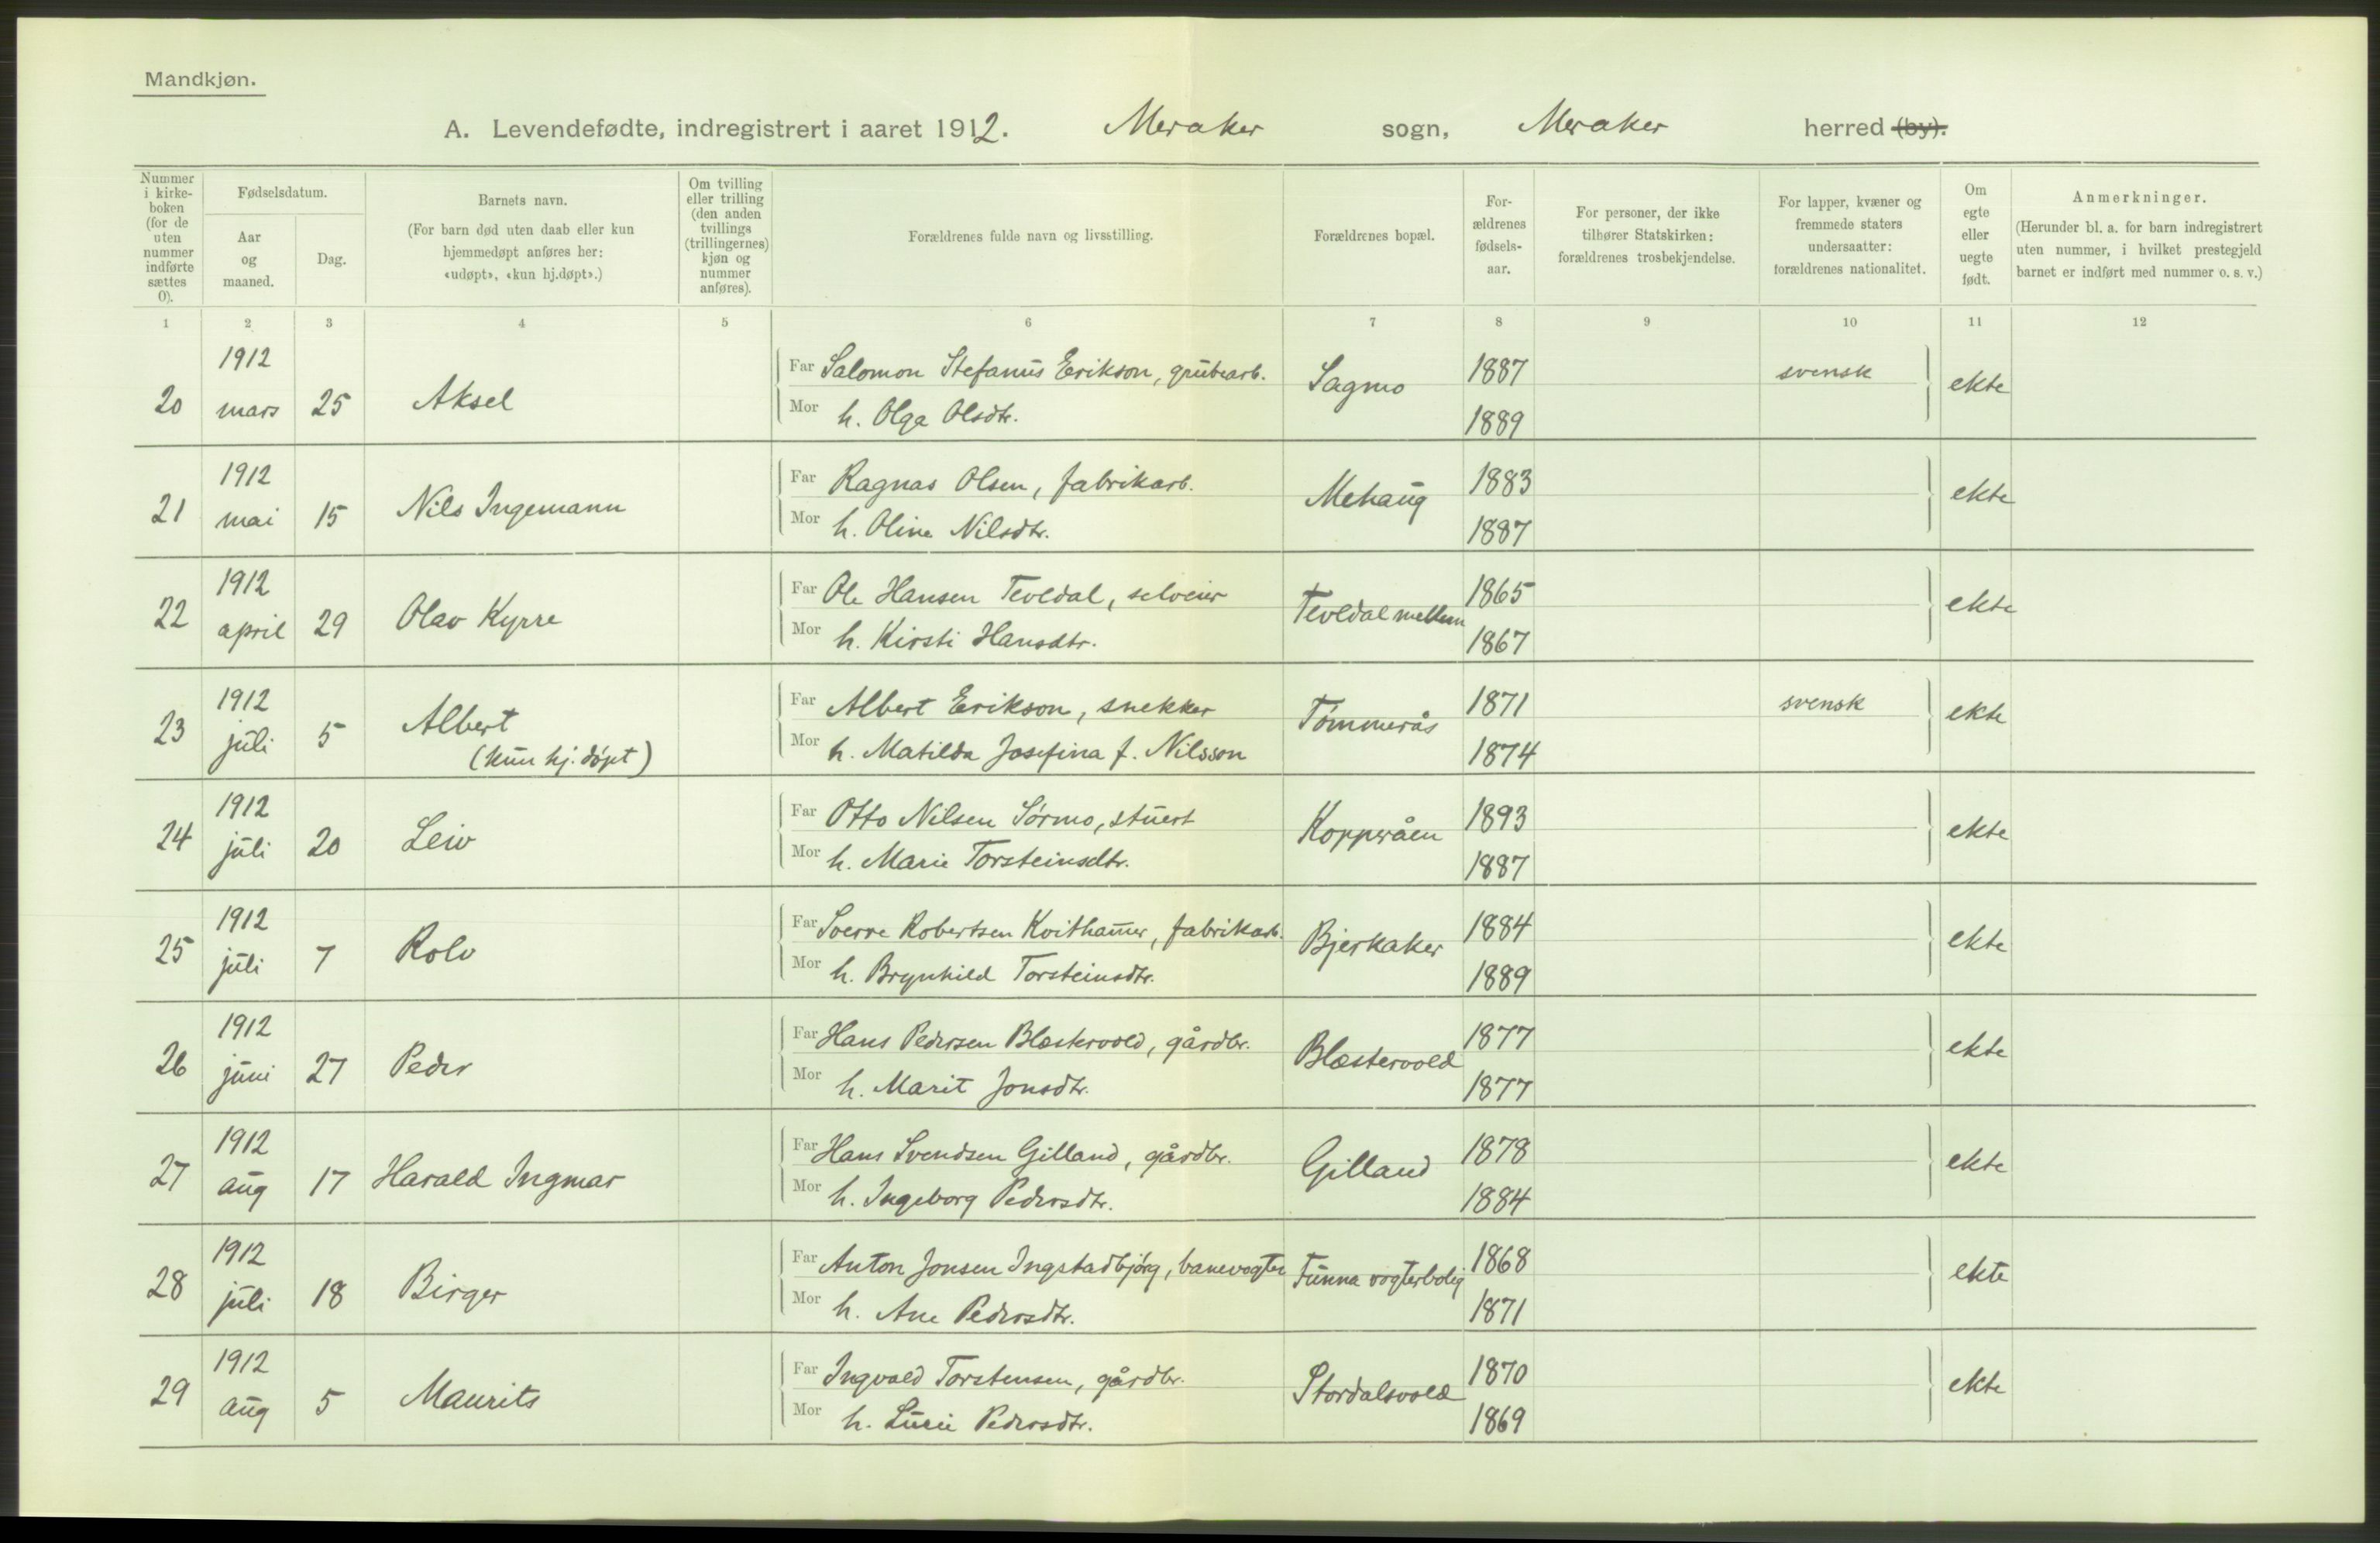 Mandkjøn.
A. Levendefødte, indregistrert i aaret 1912. Meraker sogn, Meraker herred (by).
Nummer i kirke-boken (for de uten nummer indførte sættes 0).
Fødselsdatum.
Aar og maaned.
Dag.
Barnets navn.
(For barn død uten daab eller kun hjemmedøpt anføres her: «udøpt», «kun hj.døpt».)
Om tvilling eller trilling (den anden tvillings (trillingernes) kjøn og nummer anføres).
Forældrenes fulde navn og livsstilling.
Forældrenes bopæl.
For-ældrenes fødsels-aar.
For personer, der ikke tilhører Statskirken: forældrenes trosbekjendelse.
For lapper, kvæner og fremmede staters undersaatter: forældrenes nationalitet.
Om egte eller uegte født.
Anmerkninger.
(Herunder bl. a. for barn indregistrert uten nummer, i hvilket prestegjeld barnet er indført med nummer o. s. v.)
1 2 3 4 5 6 7 8 9 10 11 12
20 1912 mars 25 Aksel Far Salomon Stefanus Erikson, grubearb. Sagmo 1887 svensk ekte
Mor h. Olga Olsdtr. 1889
21 1912 mai 15 Nils Ingemann Far Ragnas Olsen, fabrikarb. Mehaug 1883 ekte
Mor h. Oline Nilsdtr. 1887
22 1912 april 29 Olav Kyrre Far Ole Hansen Tevldal, selveier Tevldal mellem 1865 ekte
Mor h. Kirsti Hansdtr. 1867
23 1912 juli 5 Albert Far Albert Erikson, snekker Tømmerås 1871 svensk ekte
(kun hj. døpt) Mor h. Matilda Josefina f. Nilsson 1874
24 1912 juli 20 Leiv Far Otto Nilsen Sørmo, stuert Kopperåen 1893 ekte
Mor h. Marie Torsteinsdtr. 1887
25 1912 juli 7 Rolv Far Sverre Robertsen Kvithamer, fabrikarb. Bjerkaker 1884 ekte
Mor h. Brynhild Torsteinsdtr. 1889
26 1912 juni 27 Peder Far Hans Pedersen Blæstervold, gårdbr. Blæstervold 1877 ekte
Mor h. Marit Jonsdtr. 1877
27 1912 aug 17 Harald Ingmar Far Hans Svendsen Gilland, gårdbr. Gilland 1878 ekte
Mor h. Ingeborg Pedersdtr. 1884
28 1912 juli 18 Birger Far Anton Jonsen Ingstadbjørg, banevogter Funna vogterbolig 1868 ekte
Mor h. Ane Pedersdtr. 1871
29 1912 aug 5 Maurits Far Ingvald Torstensen, gårdbr. Stordalsvold 1870 ekte
Mor h. Lusie Pedersdtr. 1869